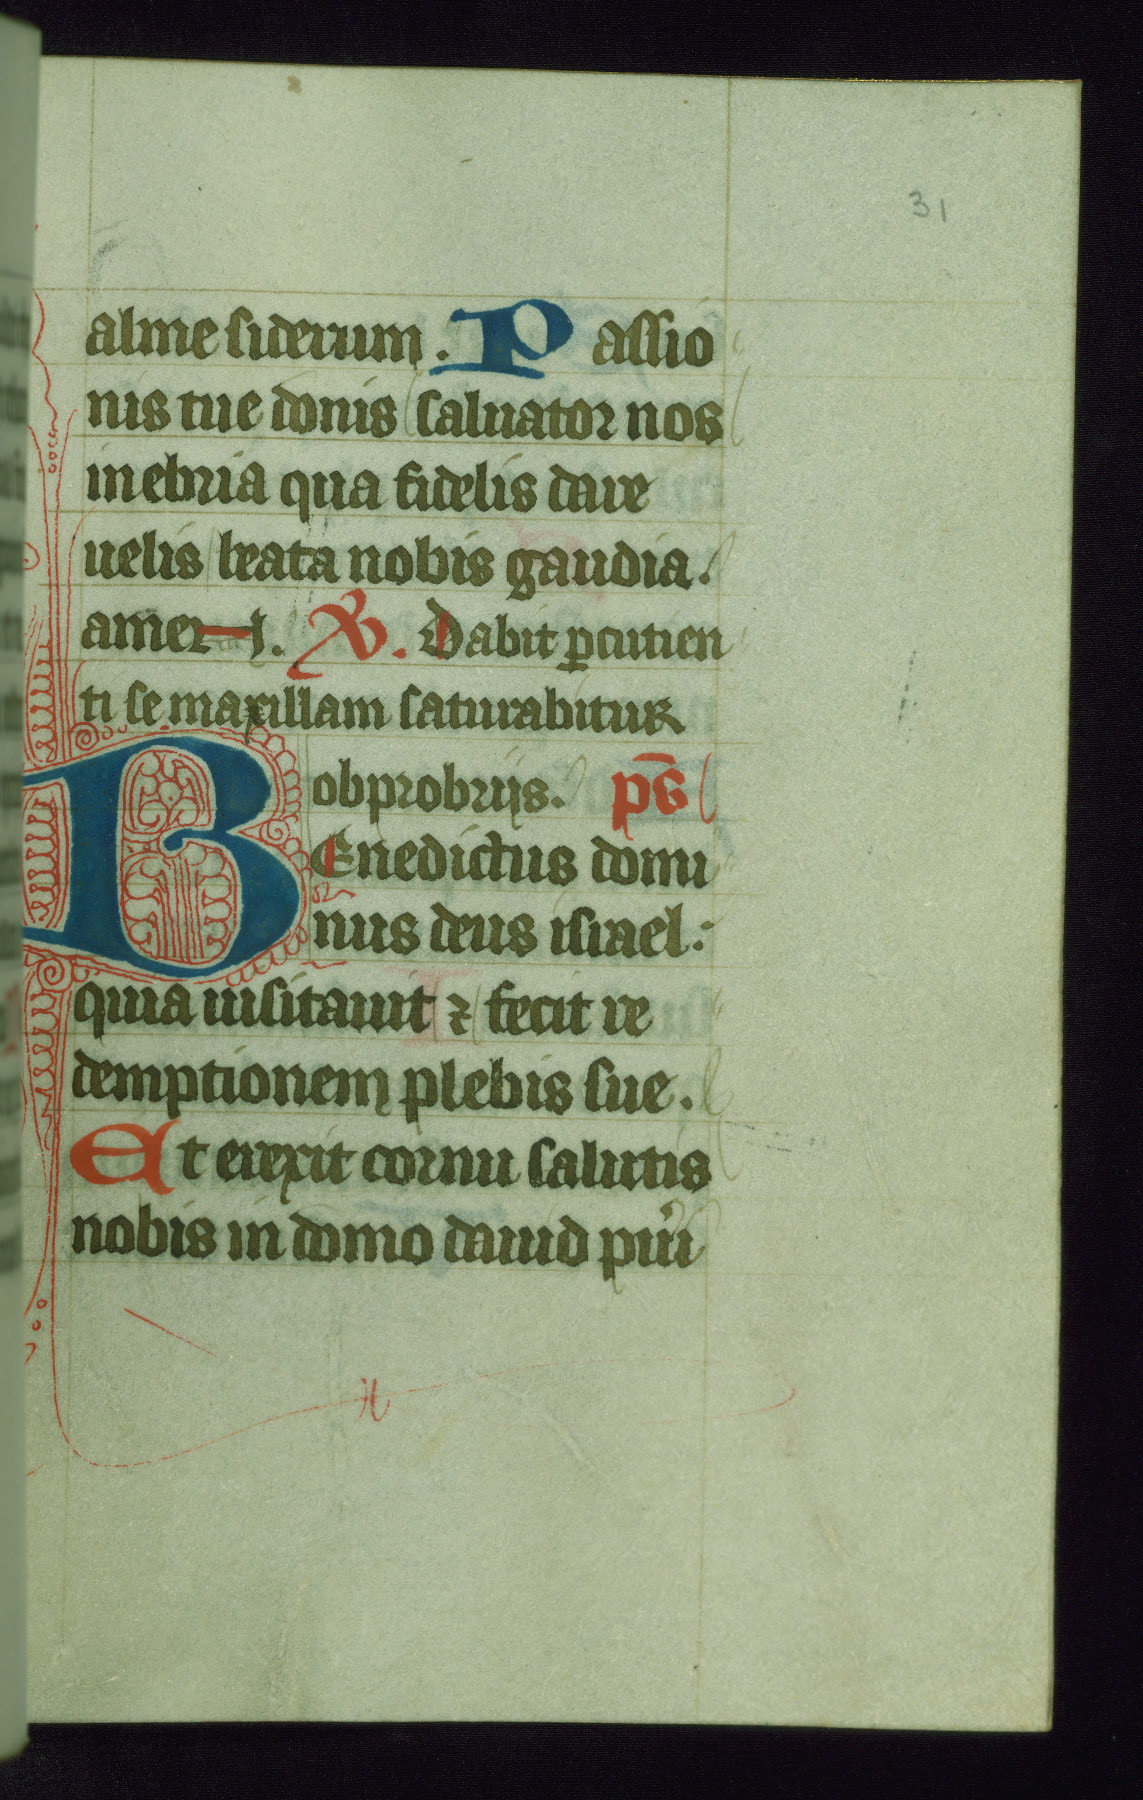 31
alme siderum. Passio
nis tue donis saluator nos
inebria qua fidelis dare
uelis beata nobis gaudia.
amen. Dabit ꝑcutien
ti se maxillam saturabitur
obprobrijs. p̄s
BEnedictus domi
nus deus israel:
quia uisitauit ⁊ fecit re
demptionem plebis sue.
Et erexit cornu salutis
nobis in domo dauid pu̾i